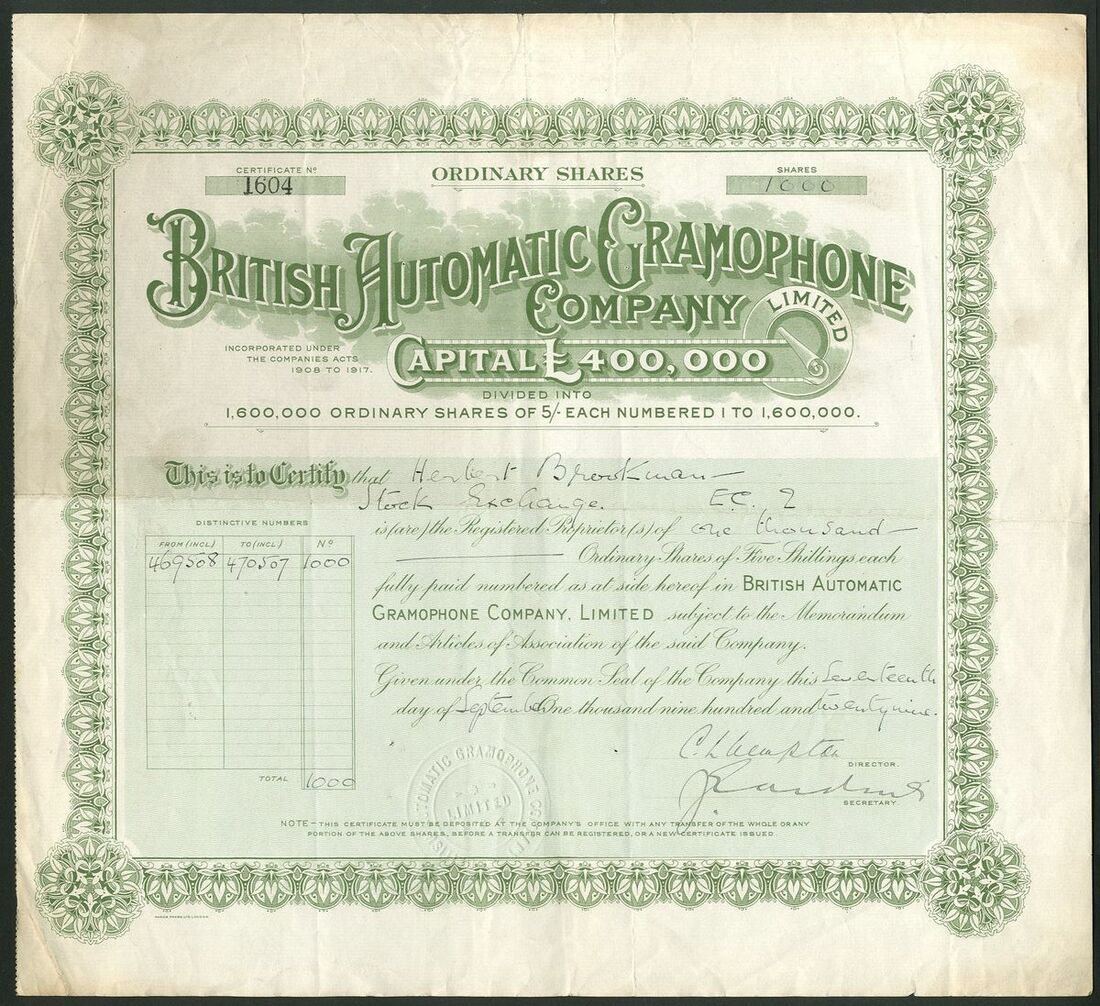 CERTIFICATE Nº
1604
ORDINARY SHARES
SHARES
1000
BRITISH AUTOMATIC GRAMOPHONE
COMPANY LIMITED
INCORPORATED UNDER
THE COMPANIES ACTS
1908 TO 1917.
CAPITAL £400,000
DIVIDED INTO
1,600,000 ORDINARY SHARES OF 5/- EACH NUMBERED 1 TO 1,600,000.
This is to Certify that Herbert Brookman
Stock Exchange. E.C. 2
is (are) the Registered Proprietor(s) of one thousand
Ordinary Shares of Five Shillings each
fully paid numbered as at side hereof in BRITISH AUTOMATIC
GRAMOPHONE COMPANY, LIMITED subject to the Memorandum
and Articles of Association of the said Company.
Given under the Common Seal of the Company this Seventeenth
day of September One thousand nine hundred and twenty nine.
DISTINCTIVE NUMBERS
FROM (INCL) TO (INCL) Nº
469508 470507 1000
TOTAL 1000
DIRECTOR.
SECRETARY.
AUTOMATIC GRAMOPHONE CO
LIMITED
NOTE - THIS CERTIFICATE MUST BE DEPOSITED AT THE COMPANY'S OFFICE WITH ANY TRANSFER OF THE WHOLE OR ANY
PORTION OF THE ABOVE SHARES, BEFORE A TRANSFER CAN BE REGISTERED, OR A NEW CERTIFICATE ISSUED.